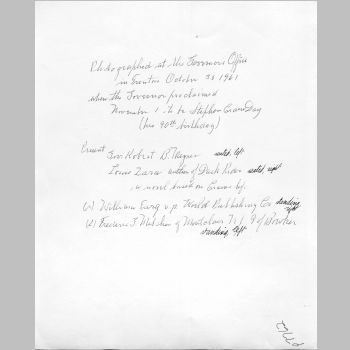 Photographed at the Governors Office
in Trenton October 30 1961
when the Governor proclaimed
November 1 - to be Stephen Crane Day
(his 90th birthday)
Present Gov. Robert B. Meyner seated, left
Louis Zara author of Dark Rider seated, right
a novel based on Crane
(1) William Targ v.p. World Publishing Co standing right
(2) Frederic F. of Montclair N J of Bowker
standing, left